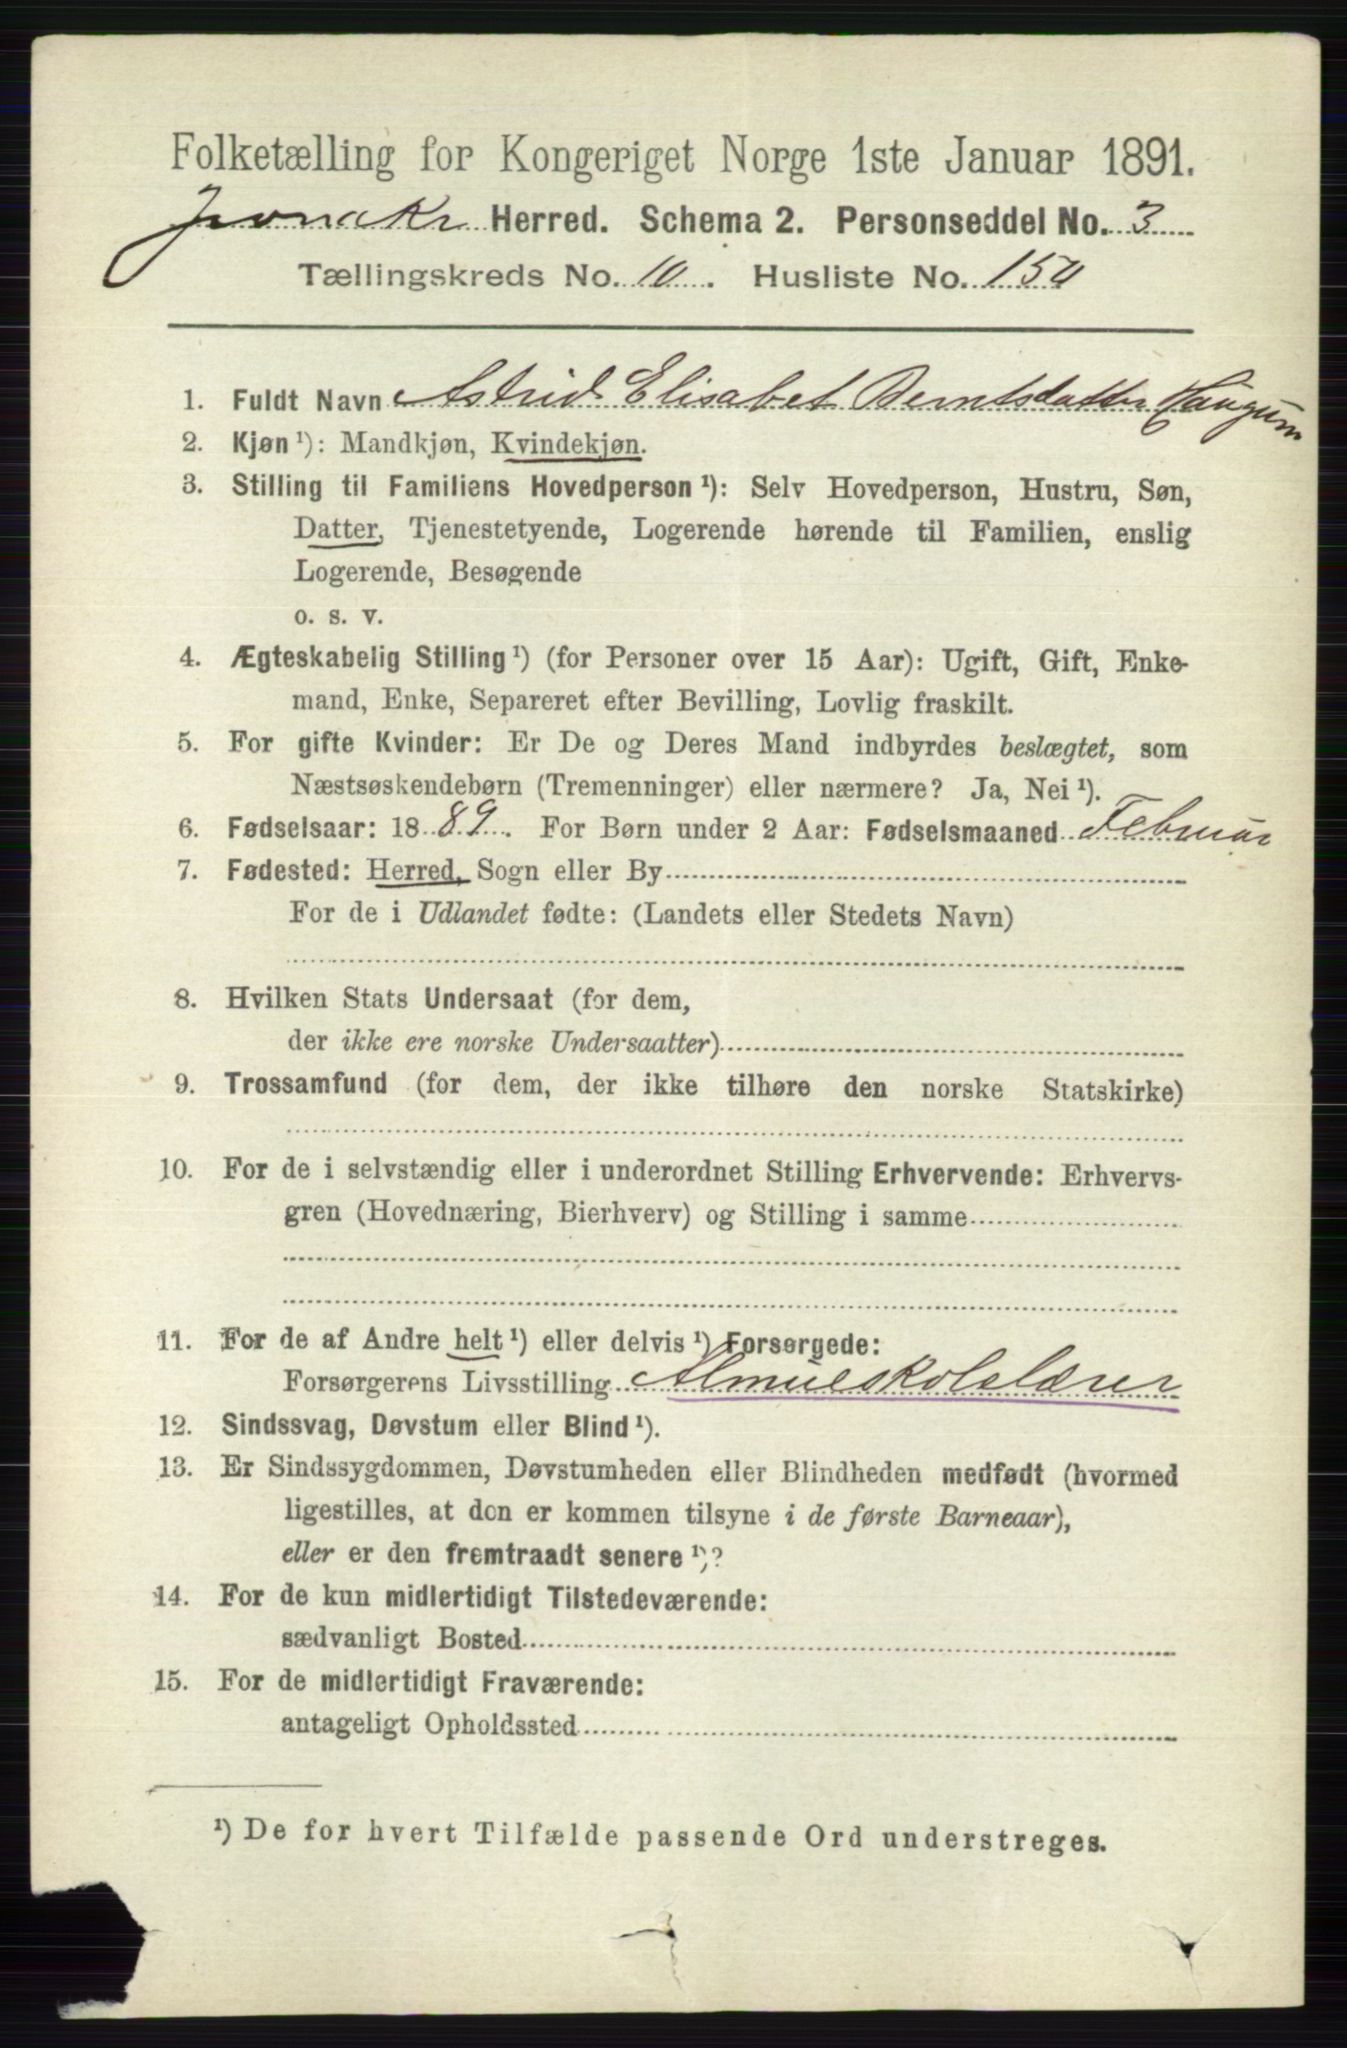 Folketælling for Kongeriget Norge 1ste Januar 1891.
Herred. Schema 2. Personseddel No. 3
Tællingskreds No. 10. Husliste No. 150
1. Fuldt Navn Astrid Elisabet Berntsdatter Haugum
2. Kjøn ¹): Mandkjøn, Kvindekjøn.
3. Stilling til Familiens Hovedperson ¹): Selv Hovedperson, Hustru, Søn,
Datter, Tjenestetyende, Logerende hørende til Familien, enslig
Logerende, Besøgende
o. s. v.
4. Ægteskabelig Stilling ¹) (for Personer over 15 Aar): Ugift, Gift, Enke-
mand, Enke, Separeret efter Bevilling, Lovlig fraskilt.
5. For gifte Kvinder: Er De og Deres Mand indbyrdes beslægtet, som
Næstsøskendebørn (Tremenninger) eller nærmere? Ja, Nei ¹).
6. Fødselsaar: 1889. For Børn under 2 Aar: Fødselsmaaned Februar
7. Fødested: Herred, Sogn eller By
For de i Udlandet fødte: (Landets eller Stedets Navn)
8. Hvilken Stats Undersaat (for dem,
der ikke ere norske Undersaatter)
9. Trossamfund (for dem, der ikke tilhøre den norske Statskirke)
10. For de i selvstændig eller i underordnet Stilling Erhvervende: Erhvervs-
gren (Hovednæring, Bierhverv) og Stilling i samme
11. For de af Andre helt ¹) eller delvis ¹) Forsørgede:
Forsørgerens Livsstilling Almueskolelærer
12. Sindssvag, Døvstum eller Blind ¹).
13. Er Sindssygdommen, Døvstumheden eller Blindheden medfødt (hvormed
ligestilles, at den er kommen tilsyne i de første Barneaar),
eller er den fremtraadt senere ¹)?
14. For de kun midlertidigt Tilstedeværende:
sædvanligt Bosted
15. For de midlertidigt Fraværende:
antageligt Opholdssted
¹) De for hvert Tilfælde passende Ord understreges.